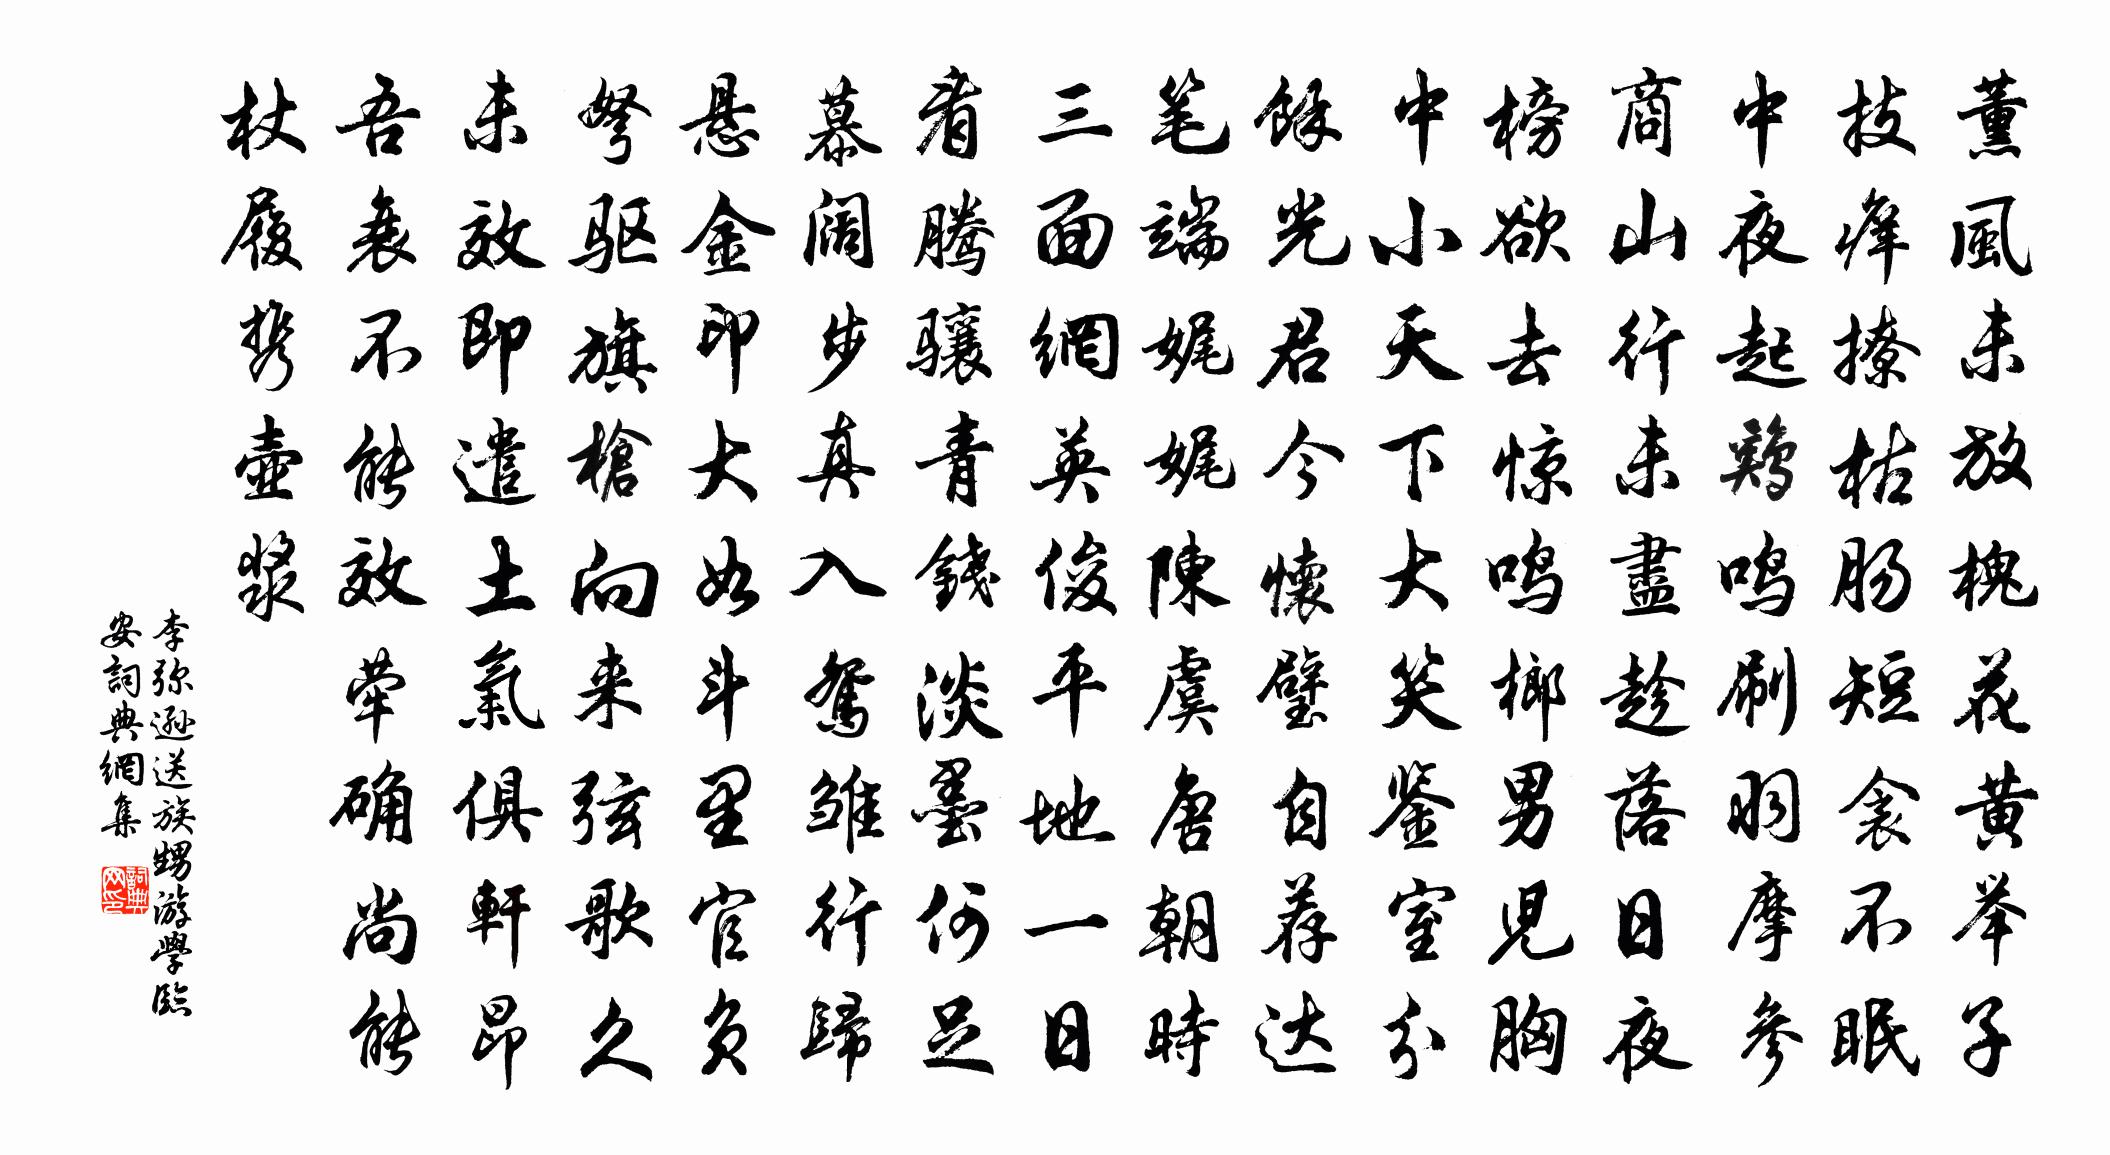 薰風未放槐花黄举子
技痒撩枯肠短衾不眠
中夜起鸡鸣刷羽摩参
商山行未盡趁落日夜
榜欲去惊鸣榔男児胸
中小天下大笑鉴室分
餘光君今懷璧自荐达
笔端娓娓陳虞唐朝時
三面網英俊平地一日
看騰骧青錢淡墨何足
慕阔步真入鸳雏行歸
悬金印大如斗里官负
弩驱旗槍向来弦歌久
未效即遣士氣俱軒昂
吾衰不能效犖确尚能
杖履携壺漿
李弥遜送族甥游學臨
安詞典網集
詞典网印